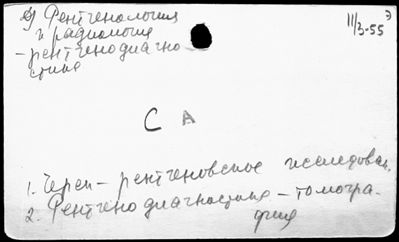 е) Рентгенология
и радиология
11/3-55 э
-рентгенодиагно
стика
С А
1. Череп - рентгеновское исследован.
2. Рентгенодиагностика - томогра-
фия